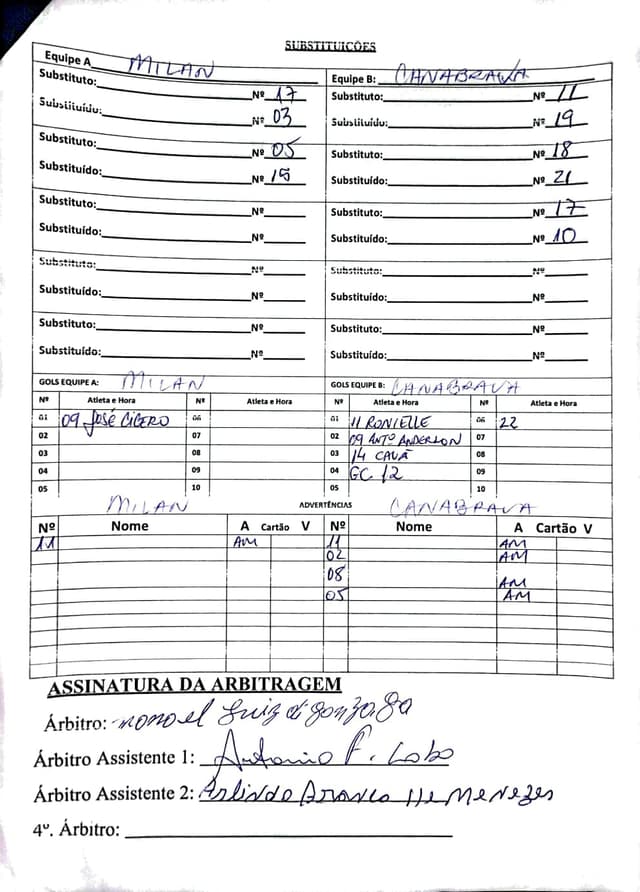 SUBSTITUICÕES
Equipe A MILAN
Substituto: Nº 17
Substituído: Nº 03
Substituto: Nº 05
Substituído: Nº 15
Substituto: Nº
Substituído: Nº
Substituto: Nº
Substituído: Nº
Substituto: Nº
Substituído: Nº
Equipe B: CANABRAVA
Substituto: Nº 11
Substituído: Nº 19
Substituto: Nº 18
Substituído: Nº 21
Substituto: Nº 17
Substituído: Nº 10
Substituto: Nº
Substituído: Nº
Substituto: Nº
Substituído: Nº
GOLS EQUIPE A: MILAN
Nº Atleta e Hora Nº Atleta e Hora
01 09 JOSÉ CICERO 06
02 07
03 08
04 09
05 10
GOLS EQUIPE B: CANABRAVA
Nº Atleta e Hora Nº Atleta e Hora
01 11 RONIELLE 06 22
02 09 ANTº ANDERSON 07
03 14 CAUÃ 08
04 GC 12 09
05 10
MILAN ADVERTÊNCIAS CANABRAVA
Nº Nome A Cartão V Nº Nome A Cartão V
11 AM 11 AM
02 AM
08 AM
05 AM
ASSINATURA DA ARBITRAGEM
Árbitro: monoel Luiz d gonzaga
Árbitro Assistente 1: Antonio F. Lobo
Árbitro Assistente 2: Arlindo Branco De MENEZES
4º. Árbitro: